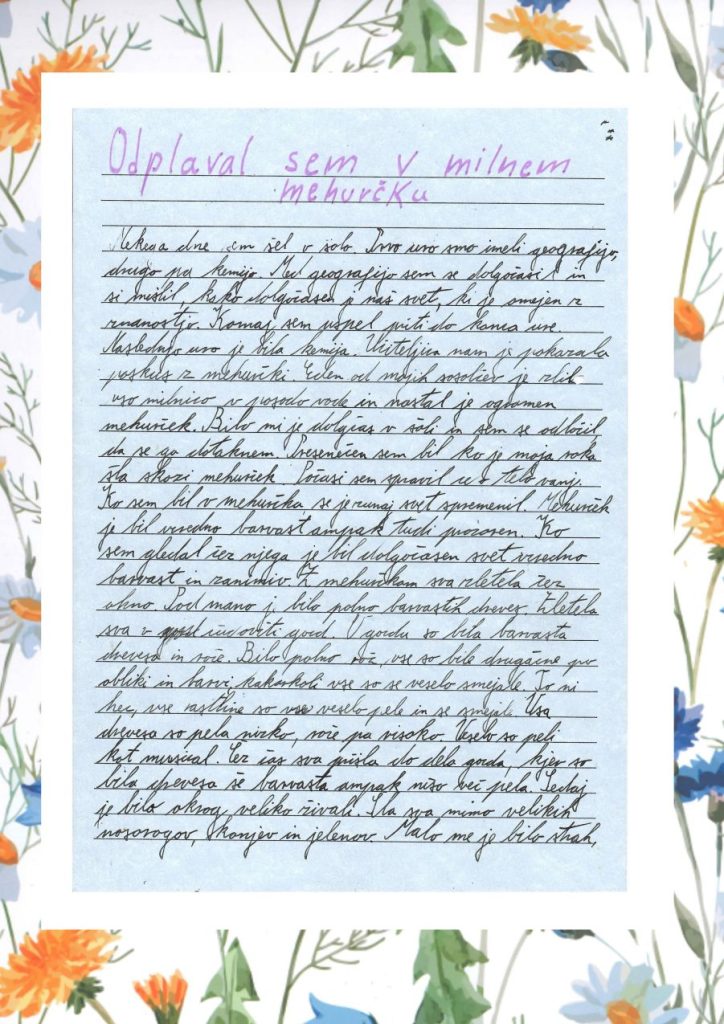 Odplaval sem v milnem
mehurčku
Nekega dne sem šel v šolo. Prvo uro smo imeli geografijo,
drugo pa kemijo. Med geografijo sem se dolgočasil in
si mislil, kako dolgočasen je naš svet, ki je omejen z
znanostjo. Komaj sem uspel priti do konca ure.
Naslednjo uro je bila kemija. Učiteljica nam je pokazala
poskus z mehurčki. Eden od mojih sošolcev je zlil
vso milnico v posodo vode in nastal je ogromen
mehurček. Bilo mi je dolgčas v šoli in sem se odločil
da se ga dotaknem. Presenečen sem bil ko je moja roka
šla skozi mehurček. Počasi sem spravil telo vanj.
Ko sem bil v mehurčku se je zunaj svet spremenil. Mehurček
je bil vzredno barvast ampak tudi prozoren. Ko
sem gledal čez njega je bil dolgočasen svet vzredno
barvast in zanimiv. Z mehurčkom sva zletela čez
okno. Pod mano je bilo polno barvastih dreves. Zletela
sva v čudoviti gozd. V gozdu so bila barvasta
drevesa in rože. Bilo polno rož, vse so bile drugačne po
obliki in barvi, kakorkoli vse so se veselo smejale. To ni
hec, vse rastline so vse veselo pele in se smejale. Vsa
drevesa so pela nizko, rože pa visoko. Veselo so peli
kot musical. Čez čas sva prišla do dela gozda, kjer so
bila drevesa še barvasta ampak niso več pela. Sedaj
je bilo okrog veliko živali. Šla sva mimo velikih
nosorogov, konjev in jelenov. Malo me je bilo strah,